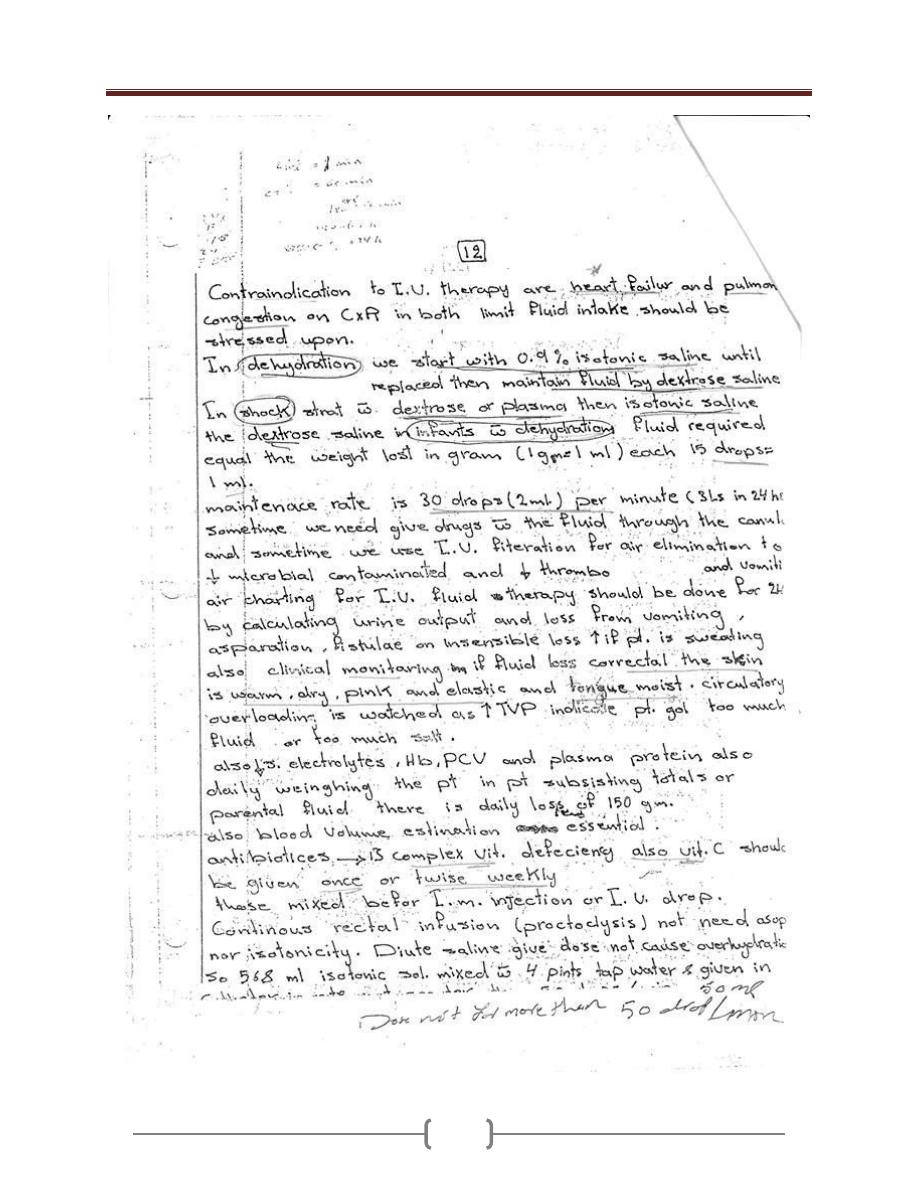 12
Contraindication to I.V. therapy are heart failur and pulmon
congestion on CxR in both limit fluid intake should be
stressed upon.
In dehydration we start with 0.9% isotonic saline until
replaced then maintain fluid by dextrose saline
In shock strat w̄ dextrose or plasma then isotonic saline
the dextrose saline in infants w̄ dehydration fluid required
equal the weight lost in gram (1gm=1 ml) each 15 drops=
1 ml.
maintenace rate is 30 drops (2ml) per minute (3Ls in 24 hr
sometime we need give drugs w̄ the fluid through the canul
and sometime we use I.V. fiteration for air elimination to
↓ microbial contaminated and ↓ thrombo and vomiti
air charting for I.V. fluid therapy should be done for 24
by calculating urine output and loss from vomiting,
asparation, fistulae on insensible loss ↑ if pt. is sweating
also clinical monitaring if fluid loss correctal the skin
is warm, dry, pink and elastic and tongue moist. circulatory
overloading is watched as ↑ JVP indicate pt. got too much
fluid or too much salt.
also s. electrolytes, Hb, PCV and plasma protein also
daily weinghing the pt in pt subsisting totals or
parental fluid there is daily loss of 150 gm.
also blood volume estination essential.
antibiotices → B complex vit. defeciency also vit. C should
be given once or twise weekly
those mixed befor I.m. injection or I.V. drop.
Continous rectal infusion (proctoclysis) not need asep
nor isotonicity. Diute saline give dose not cause overhydratio
so 568 ml isotonic sol. mixed w̄ 4 pints tap water & given in
50 ml
Dose not for more than 50 drop/min